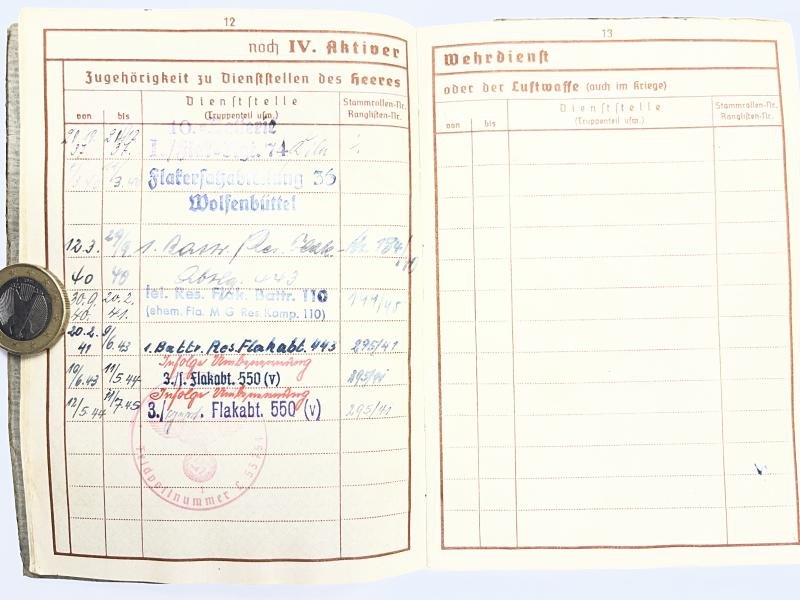 12
noch IV. Aktiver
Zugehörigkeit zu Dienststellen des Heeres
von bis Dienststelle (Truppenteil usw.) Stammrollen-Nr. Ranglisten-Nr.
10.
37. 37. 74 Köln
Flakersatzabteilung 36
Wolfenbüttel
12.3. 29/9 1. Battr. Res. Flak- Nr. 184/
40 40 Abtlg. 443
30.9. 20.2. lei. Res. Flak. Battr. 110 141/48
40. 41. (ehem. Fla. M G Res. Komp. 110)
20.2. 9/
41 6.43 1. Battr. Res. Flakabt. 443 295/41
Infolge Umbenennung
10/6.43 11/5.44 3./j. Flakabt. 550 (v) 295/41
Infolge Umbenennung
12/5.44 11/7.45 3./ . Flakabt. 550 (v) 295/41
Feldpostnummer L
13
Wehrdienst
oder der Luftwaffe (auch im Kriege)
von bis Dienststelle (Truppenteil usw.) Stammrollen-Nr. Ranglisten-Nr.